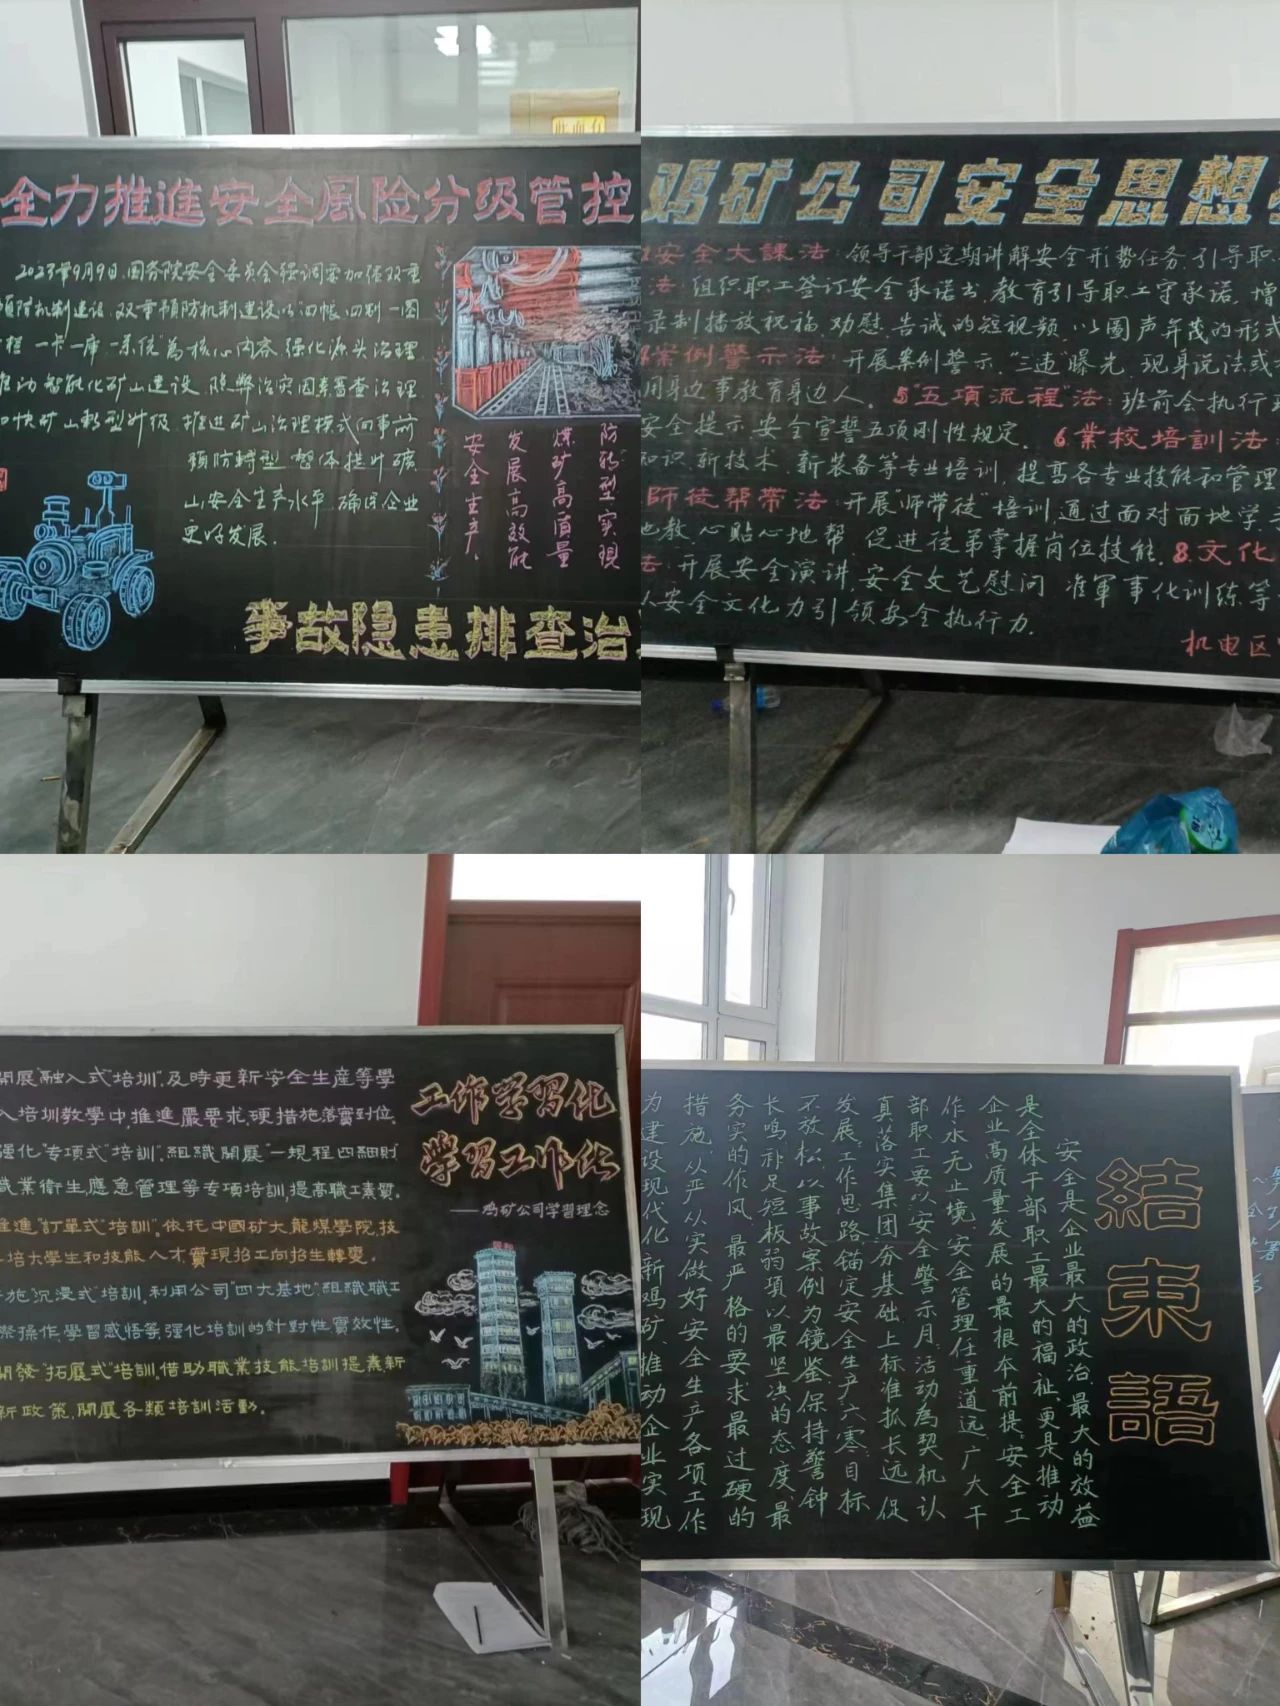 全力推進安全風险分级管控
2023年9月9日,国务院安全委员会强调要加强双重
预防机制建设,双重预防机制建设以"四帐、四制、一图
一卡一库一系统"為核心内容,强化源头治理
推动智能化矿山建设,隐弊治灾因素普查治理
加快矿山転型升级,推进矿山治理模式向事前
预防轉型,整体提升礦
山安全生产水平,确保企业
更好发展。
防转型实现
煤矿高质量
发展高效能
安全生产。
事故隐患排查治
鸡矿公司安全思想
安全大課法:领导干部定期讲解安全形势任务,引导职
法:组织职工签订安全承诺书,教育引导职工守承诺,增
录制播放祝福、劝慰、告诫的短视频,以图声并茂的形式
案例警示法:开展案例警示,"三违"曝光,现身说法或
用身边事教育身边人。5"五項流程"法:班前会执行
安全提示、安全宣誓五项刚性规定。6業校培訓法
知识、新技术、新装备等专业培训,提高各专业技能和管理
師徒帮带法:开展"师带徒"培训,通过面对面地学
地教、心贴心地帮,促进徒弟掌握岗位技能。8.文化
法:开展安全演讲,安全文艺慰问、准軍事化训练等
以安全文化力引领安全执行力。
机电区
開展"融入式"培訓".及時更新安全生産等學
入培訓教學中,推進嚴要求,硬措施落實到位.
强化"专项式"培訓".組織開展"一規程四細則"
職業衛生,應急管理等专項培訓,提高職工素質.
推進"訂單式"培訓".依托中國矿大,龍煤學院,技
培大學生和技能人才,實現招工向招生轉變.
施沉浸式"培訓,利用公司"四大基地".組織職工
際操作,學習感悟等,强化培訓的針對性實效性.
開發"拓展式"培訓.借助職業技能培訓提素新
新政策,開展各類培訓活動.
工作学習化
学習工作化
——鸡矿公司学習理念
結束語
安全是企业最大的政治、最大的效益
是全体干部职工最大的福祉,更是推动
企业高质量发展的最根本前提,安全工
作永无止境,安全管理任重道远,广大干
部职工要以"安全警示月"活动為契机,认
真落实集团"夯基础上标准抓长远促
发展"工作思路,锚定安全生产"六零"目标
不放松,以事故案例为镜鉴,保持警钟
长鸣,补足短板弱項,以最坚决的态度、最
务实的作风、最严格的要求、最过硬的
措施,从严从实做好安全生产各项工作
为建设现代化新鸡矿,推动企业实现